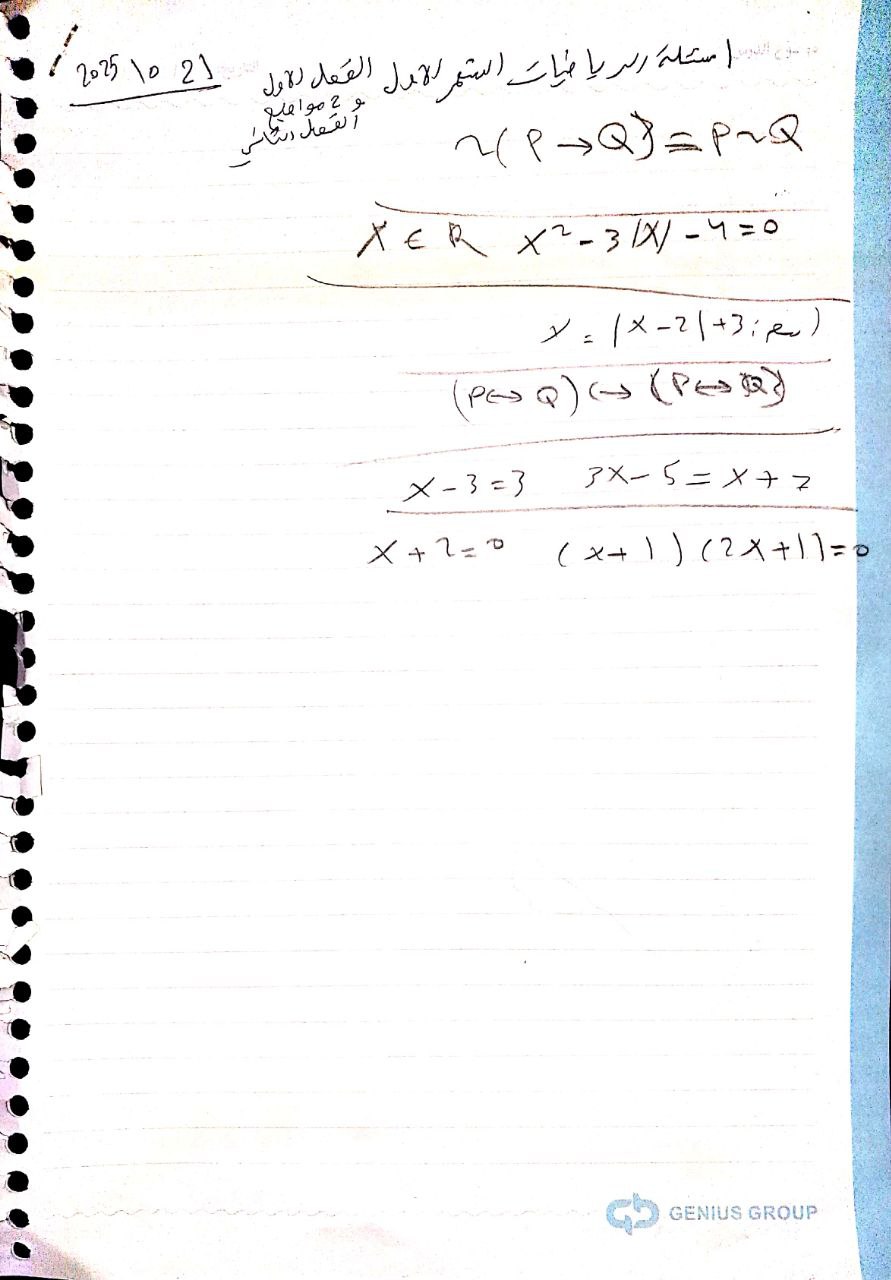 اسئلة الرياضيات الشهر الاول الفصل الاول 21 10 2025
و 2 مواضيع
الفصل الثاني
~(P→Q) ≡ P~Q
X ∈ R X² - 3|X| - 4 = 0
ارسم: y = |x-2|+3
(P↔Q) ↔ (P↔Q)
x - 3 = 3 3x - 5 = x + 7
x + 2 = 0 (x+1) (2x+1) = 0
GENIUS GROUP